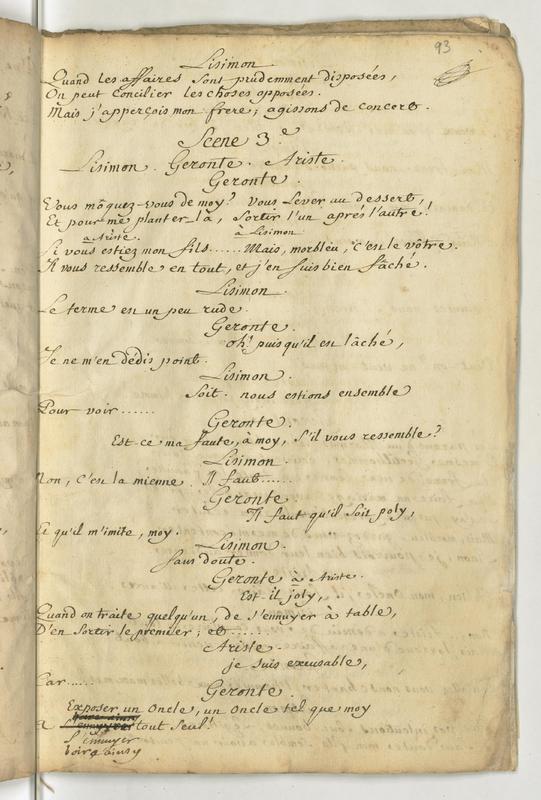 93
Lisimon
Quand les affaires sont prudemment disposées,
On peut concilier les choses opposées.
Mais j'apperçois mon frere; agissons de concert.
Scene 3e
Lisimon. Geronte. Ariste.
Geronte.
Vous môquez-vous de moy? Vous lever au dessert,
Et pour me planter là, sortir l'un aprés l'autre!
a Ariste. à Lisimon
Si vous estiez mon fils...... Mais, morbleu, c'est le vôtre.
Il vous ressemble en tout, et j'en suis bien fâché.
Lisimon.
Le terme est un peu rude.
Geronte.
oh! puis qu'il est lâché,
Je ne m'en dédis point.
Lisimon.
Soit. nous estions ensemble
Pour voir......
Geronte.
Est-ce ma faute, à moy, s'il vous ressemble?
Lisimon.
Non, c'est la mienne. Il faut......
Geronte.
Il faut qu'il soit poly,
Et qu'il m'imite, moy.
Lisimon.
Sans doute.
Geronte à Ariste.
Est-il joly,
Quand on traite quelqu'un, de s'ennuyer à table,
D'en sortir le premier; et......
Ariste.
je suis excusable,
Car......
Geronte.
Exposer un Oncle, un Oncle tel que moy
A tout seul!
s'ennuyer
boire ainsy